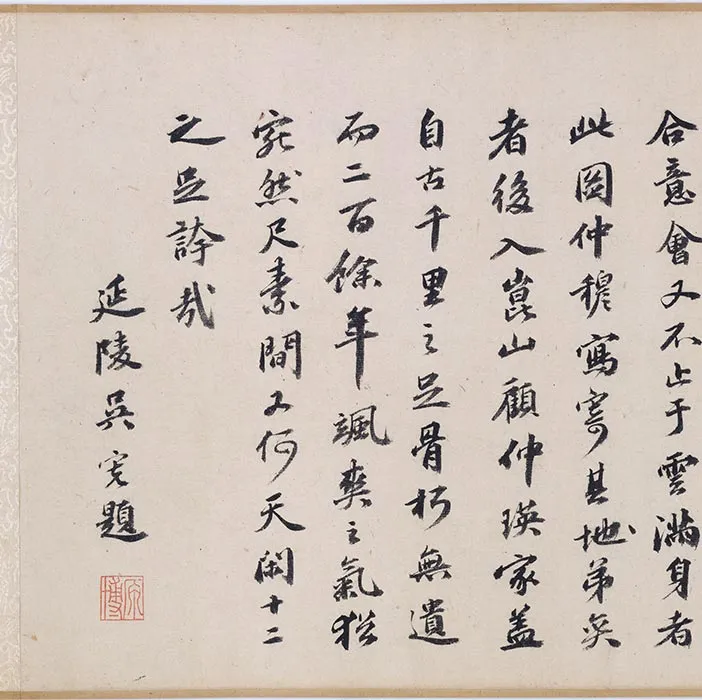 合意會又不止于雲滿身者
此圖仲穆寫寄其地弟奕
者後入崑山顧仲瑛家蓋
自古千里之足骨朽無遺
而二百餘年颯爽之氣猶
宛然尺素間又何天閑十二
之足誇哉
延陵吳寬題
原博